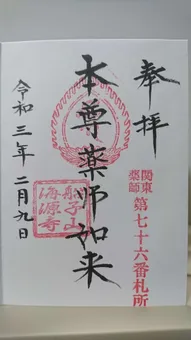 奉拝
関東
薬師
第七十六番札所
本尊薬師如来
船子山
海源寺
令和三年二月九日